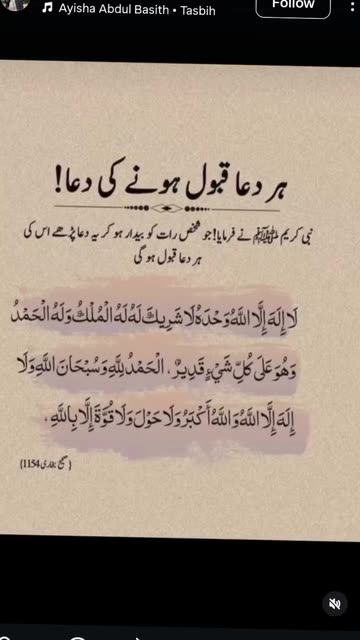 Ayisha Abdul Basith • Tasbih
Follow
ہر دعا قبول ہونے کی دعا!
نبی کریم ﷺ نے فرمایا! جو شخص رات کو بیدار ہو کر یہ دعا پڑھے اس کی
ہر دعا قبول ہو گی
لَا إِلَهَ إِلَّا اللَّهُ وَحْدَهُ لَا شَرِيكَ لَهُ لَهُ الْمُلْكُ وَلَهُ الْحَمْدُ
وَهُوَ عَلَى كُلِّ شَيْءٍ قَدِيرٌ، الْحَمْدُ لِلَّهِ وَسُبْحَانَ اللَّهِ وَلَا
إِلَهَ إِلَّا اللَّهُ وَاللَّهُ أَكْبَرُ وَلَا حَوْلَ وَلَا قُوَّةَ إِلَّا بِاللَّهِ،
{صحیح بخاری 1154}